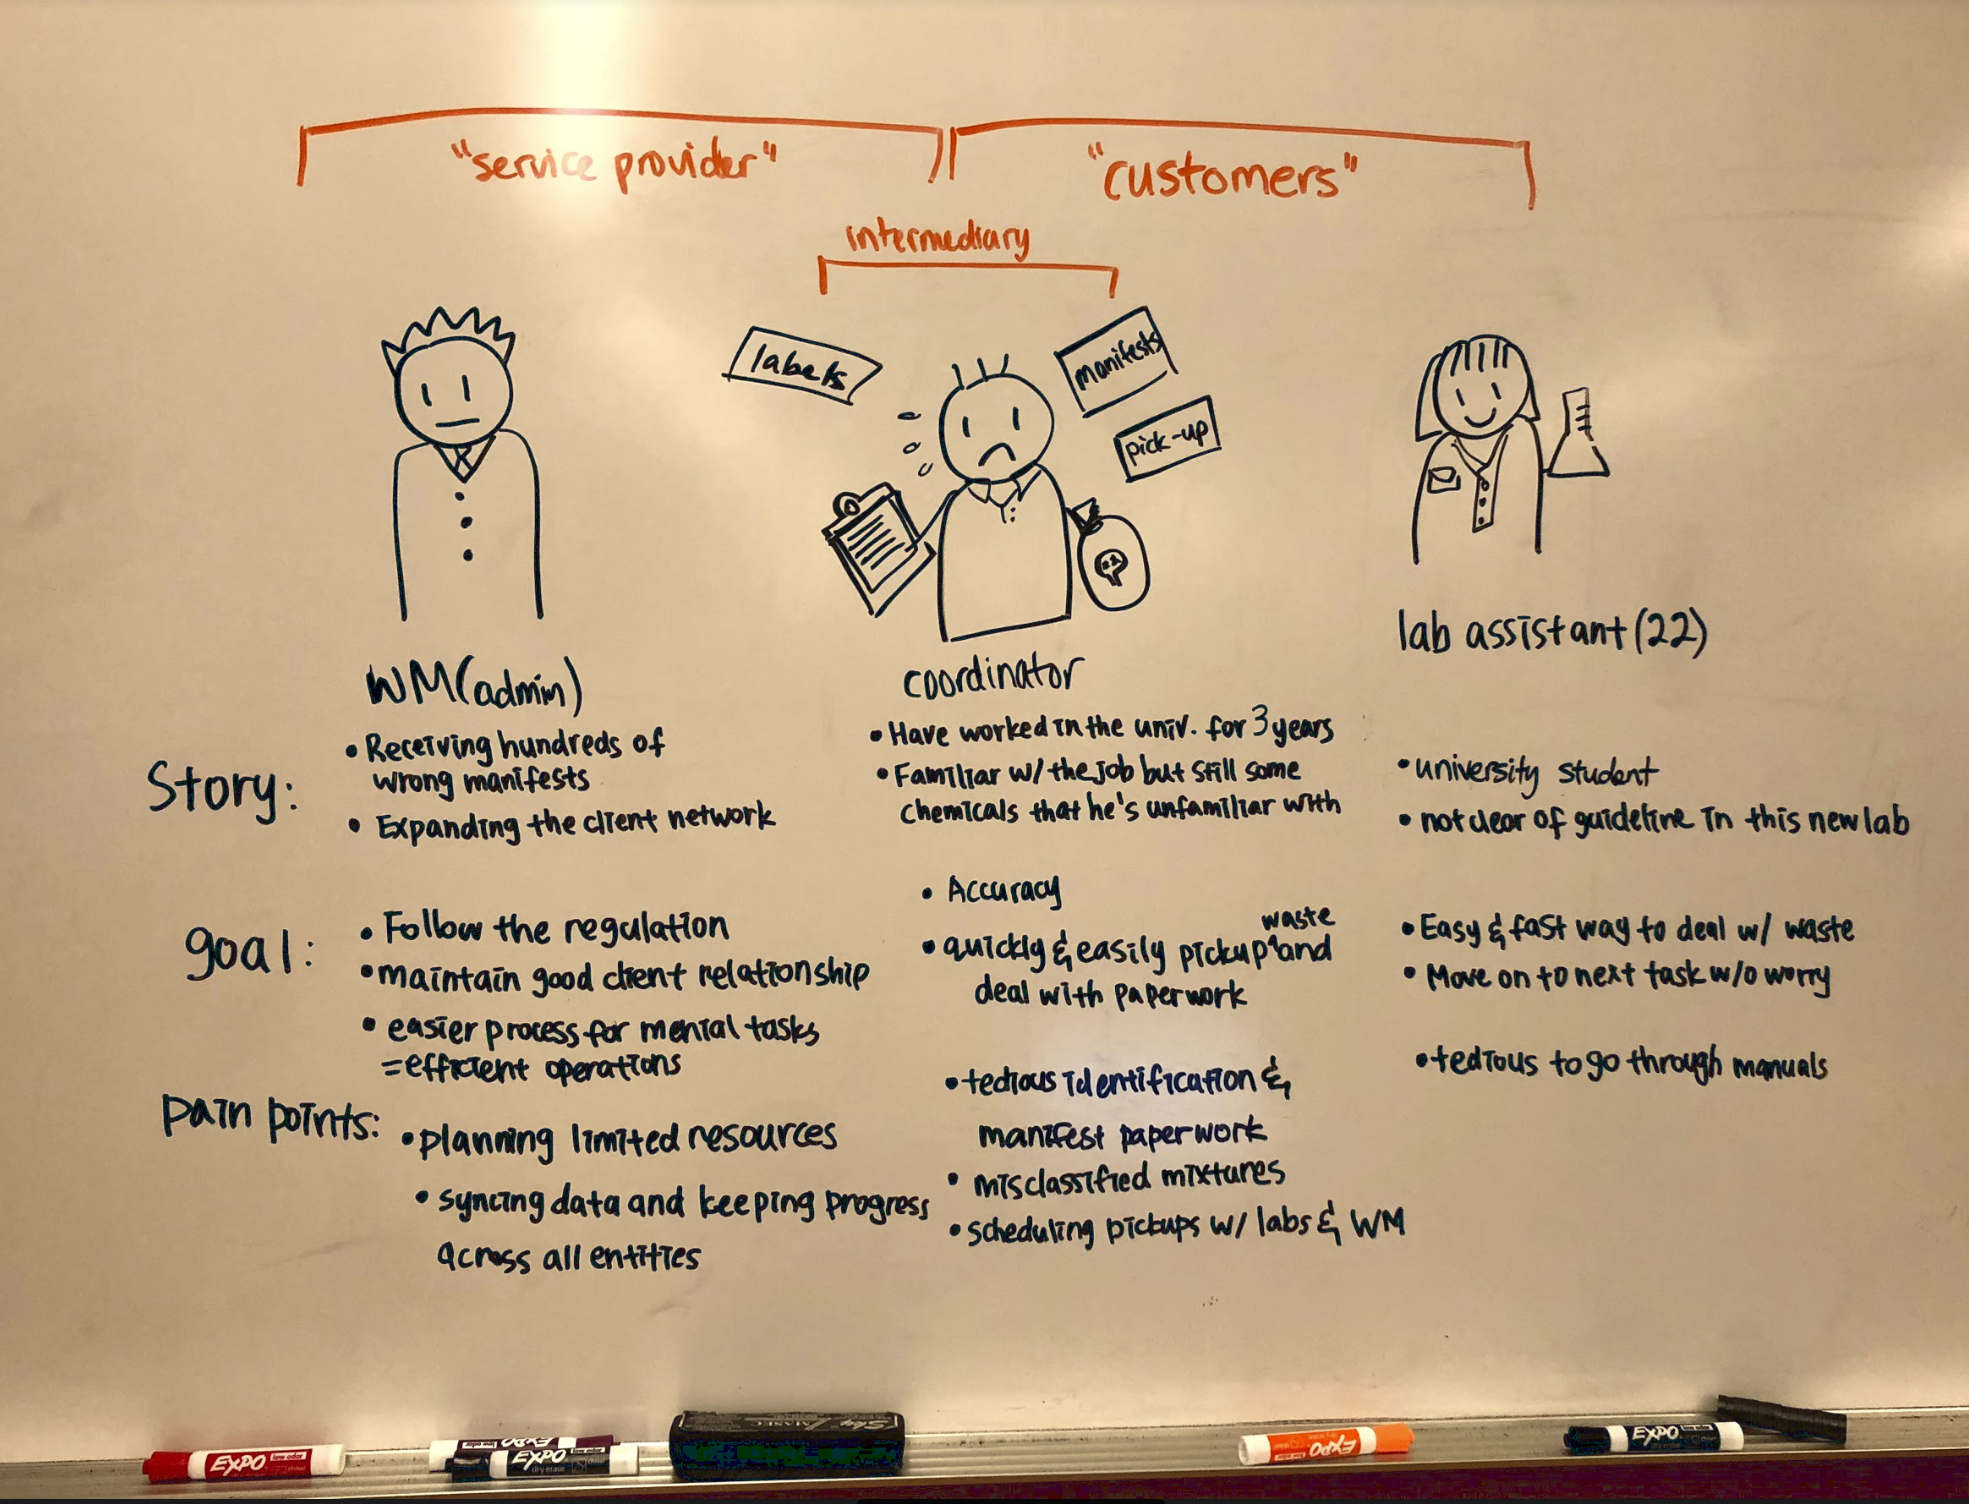 "service provider"
"customers"
intermediary
labels
manifests
pick-up
WM(admin)
coordinator
lab assistant(22)
Story:
• Receiving hundreds of
wrong manifests
• Expanding the client network
• Have worked in the univ. for 3 years
• Familiar w/ the job but still some
chemicals that he's unfamiliar with
• university student
• not clear of guideline in this new lab
goal:
• Follow the regulation
• maintain good client relationship
• easier process for menial tasks
= efficient operations
• Accuracy
waste
• quickly & easily pickup ^ and
deal with paperwork
• Easy & fast way to deal w/ waste
• Move on to next task w/o worry
pain points:
• planning limited resources
• syncing data and keeping progress
across all entities
• tedious identification &
manifest paperwork
• misclassified mixtures
• scheduling pickups w/ labs & WM
• tedious to go through manuals
EXPO low odor
EXPO
EXPO
dry erase
EXPO
EXPO low odor